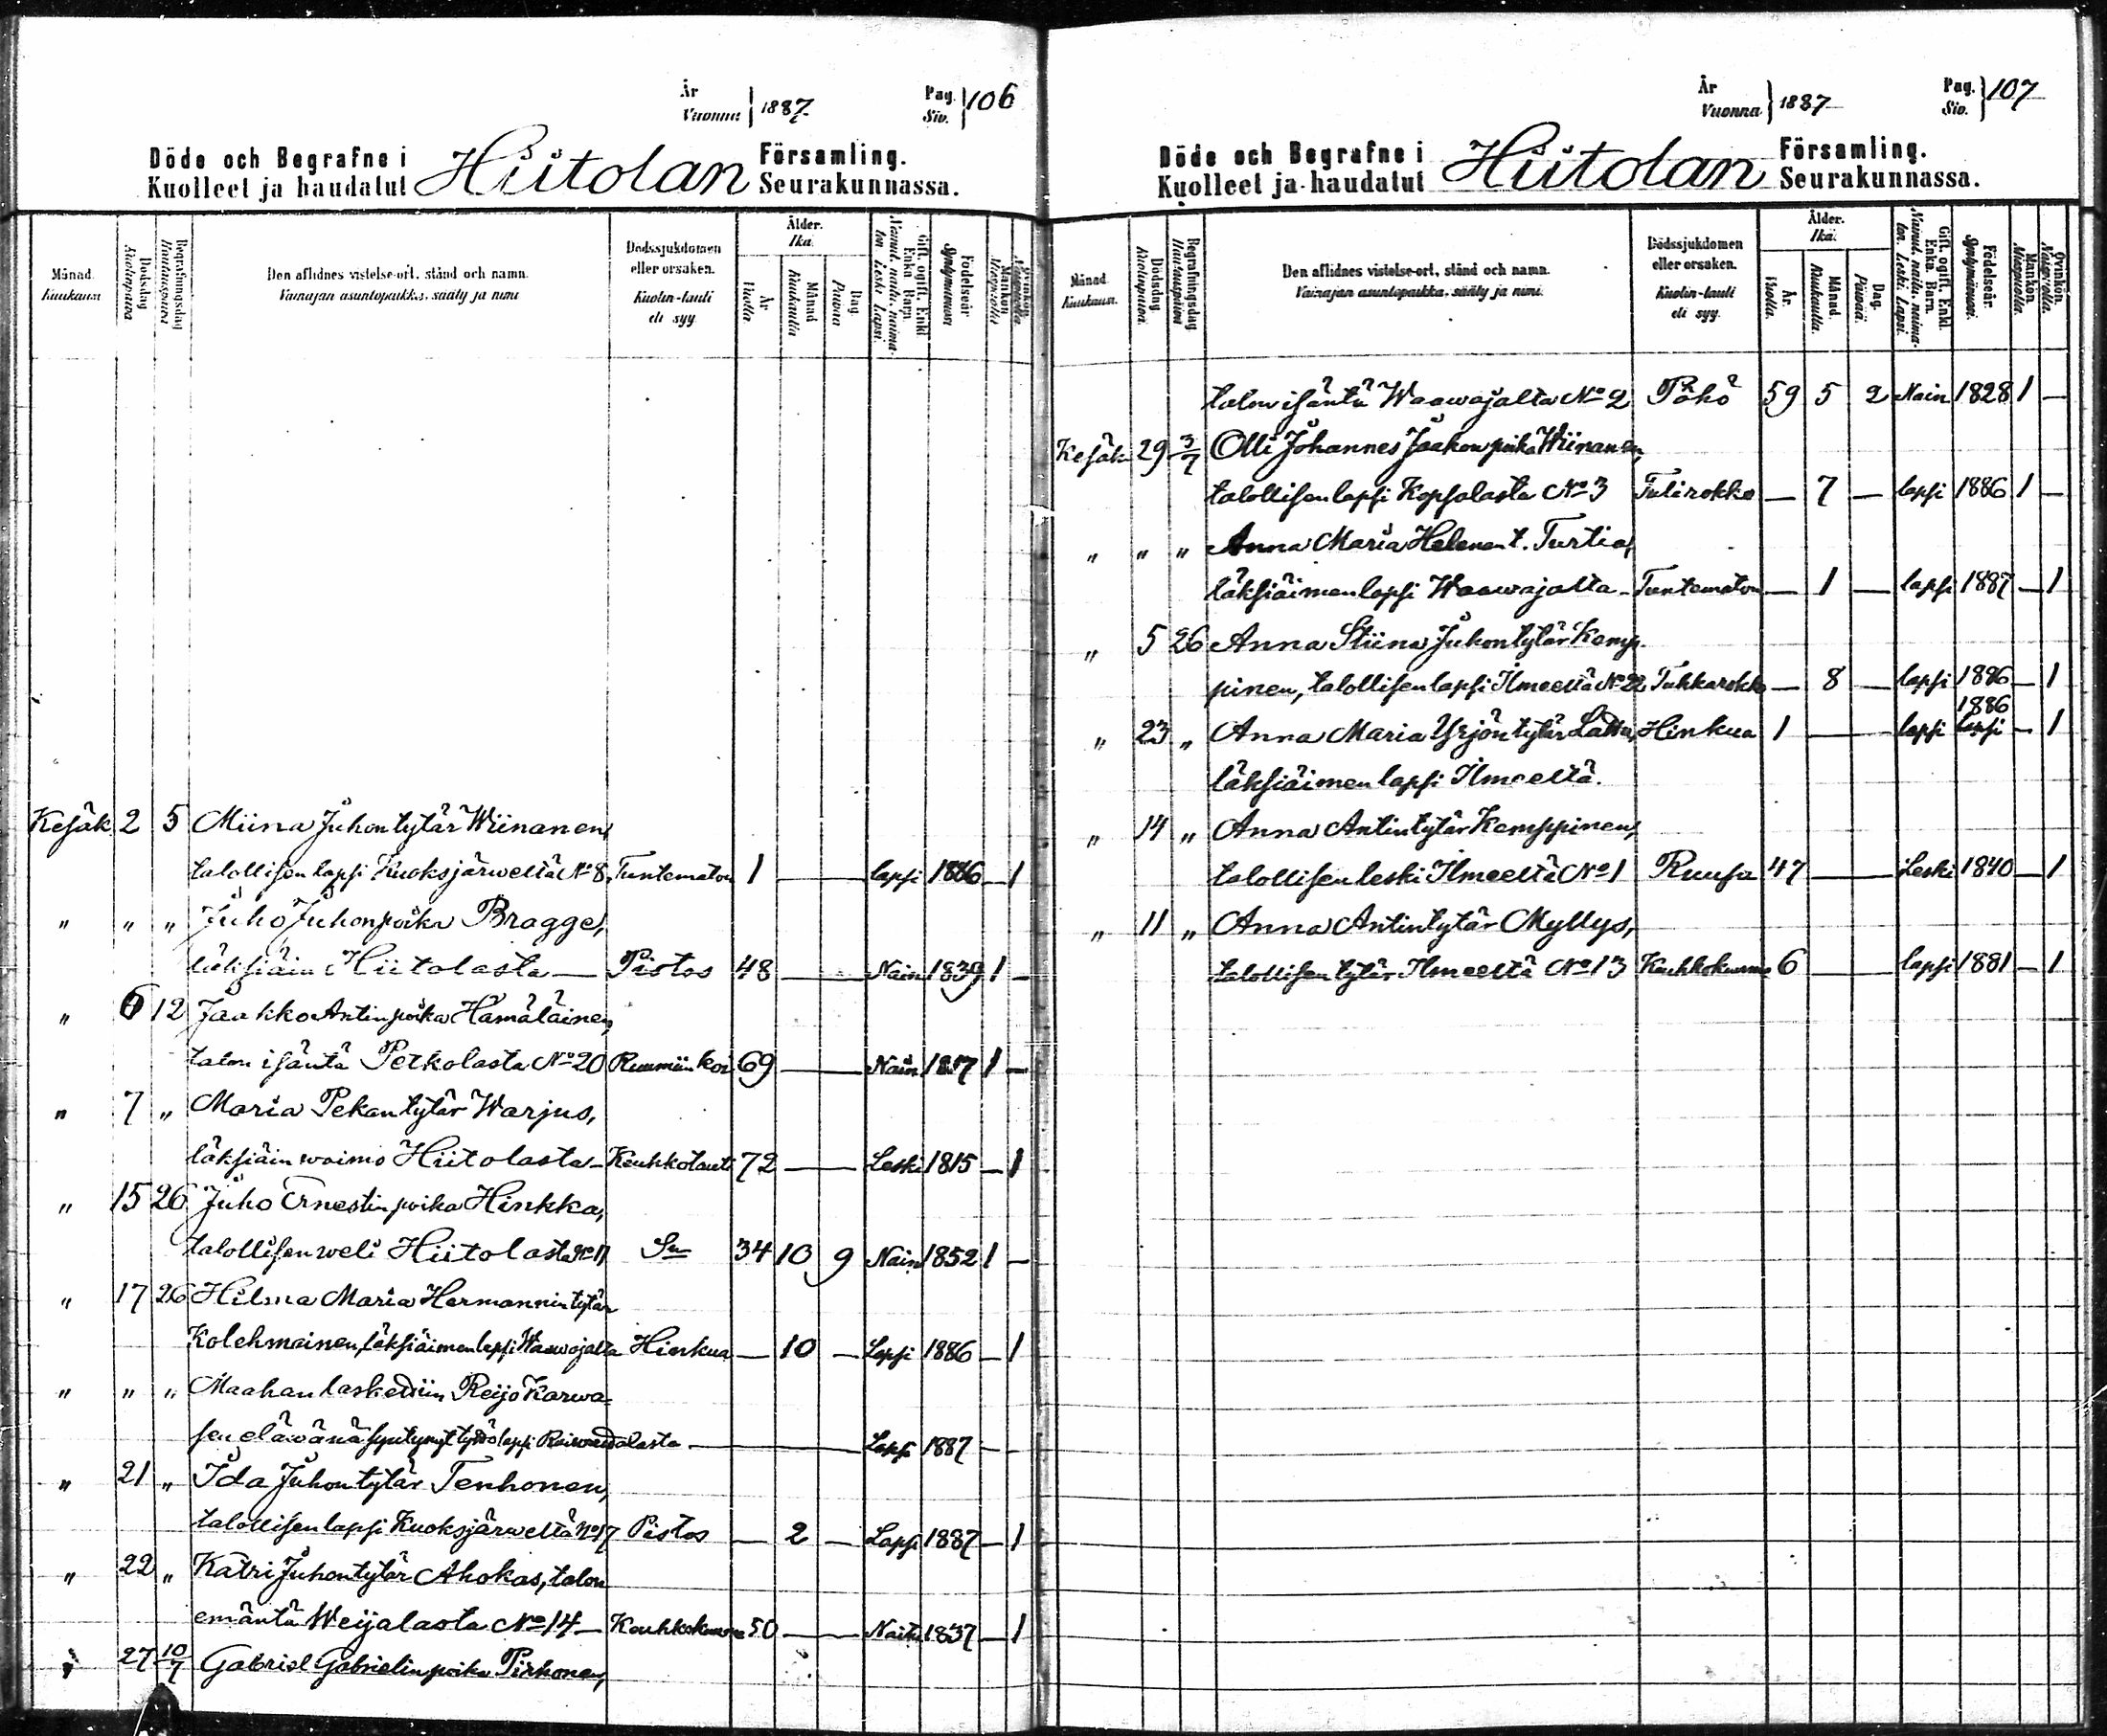 År
Vuonna } 1887
Pag.
Siv. } 106
Döde och Begrafne i Hiitolan Församling.
Kuolleet ja haudatut Seurakunnassa.
Månad. Kuukausi
Dödsdag Kuolinpäivä
Begrafningsdag Hautauspäivä
Den aflidnes vistelse-ort, stånd och namn.
Vainajan asuntopaikka, sääty ja nimi
Dödssjukdomen eller orsaken.
Kuolin-tauti eli syy
Ålder. Ikä.
År Vuotta
Månad Kuukautta
Dag. Päivää
Gift, ogift, Enkl. Enka. Barn.
Nainut, naitu, naimaton. Leski. Lapsi.
Födelseår Syntymävuosi
Mankön Miespuolia
Qvinkön. Naispuolia.
Kesäk. 2 5 Miina Juhontytär Wiinanen,
talollisen lapsi Kuoksjärweltä No 8. Tuntematon 1 — lapsi 1886 — 1
" " " Juho Juhonpoika Bragge,
läksiäin Hiitolasta — Pistos 48 — Nain 1839 1 —
" 6 12 Jaakko Antinpoika Hämäläinen,
talon isäntä Petkolasta No 20 Ruumiin koi 69 — Nain 1817 1 —
" 7 " Maria Pekantytär Warjus,
läksiäin waimo Hiitolasta — Keuhkotauti 72 — Leski 1815 — 1
" 15 26 Juho Ernestinpoika Hinkka,
talollisen weli Hiitolasta No 17 Sn 34 10 9 Nain 1852 1 —
" 17 26 Hilma Maria Hermannintytär
Kolehmainen, läksiäimen lapsi Waawajalta Hinkua — 10 — Lapsi 1886 — 1
" " " Maahan laskettiin Reijo Karwa-
sen eläwänä syntynyt tyttölapsi — Lapsi 1887 —
" 21 " Ida Juhontytär Tenhonen,
talollisen lapsi Kuoksjärweltä No 17 Pistos — 2 — Lapsi 1887 — 1
" 22 " Katri Juhontytär Ahokas, talon
emäntä Weijalasta No 14 — Keuhkokuume 50 — Naitu 1837 — 1
" 27 10/7 Gabriel Gabrielinpoika Pirhonen,
År
Vuonna } 1887
Pag.
Siv. } 107
Döde och Begrafne i Hiitolan Församling.
Kuolleet ja haudatut Seurakunnassa.
Månad. Kuukausi.
Dödsdag. Kuolinpäivä.
Begrafningsdag Hautauspäivä
Den aflidnes vistelse-ort, stånd och namn.
Vainajan asuntopaikka, sääty ja nimi.
Dödssjukdomen eller orsaken.
Kuolin-tauti eli syy.
Ålder. Ikä.
År. Vuotta.
Månad Kuukautta.
Dag. Päivää.
Gift, ogift, Enkl. Enka. Barn.
Nainut, naitu, naimaton. Leski. Lapsi.
Födelseår. Syntymävuosi.
Mankön. Miespuolia.
Qvinkön. Naispuolia.
talon isäntä Waawajalta No 2 Pöhö 59 5 2 Nain 1828 1 —
Kesäk 29 3/7 Olli Johannes Jaakonpoika Wiinanen,
talollisen lapsi Kopsalasta No 3 Tulirokko — 7 — lapsi 1886 1 —
" " " Anna Maria Helenan t. Turtia,
läksiäimen lapsi Waawajalta — Tuntematon — 1 — lapsi 1887 — 1
" 5 26 Anna Stiina Juhontytär Kemp-
pinen, talollisen lapsi Ilmeeltä No 22 Tuhkarokko — 8 — lapsi 1886 — 1
1886
" 23 " Anna Maria Yrjöntytär Lattu, Hinkua 1 — lapsi lapsi — 1
läksiäimen lapsi Ilmeeltä.
" 14 " Anna Antintytär Kemppinen,
talollisen leski Ilmeeltä No 1 Ruusu 47 — Leski 1840 — 1
" 11 " Anna Antintytär Myllys,
talollisen tytär Ilmeeltä No 13 Keuhkokuume 6 — lapsi 1881 — 1